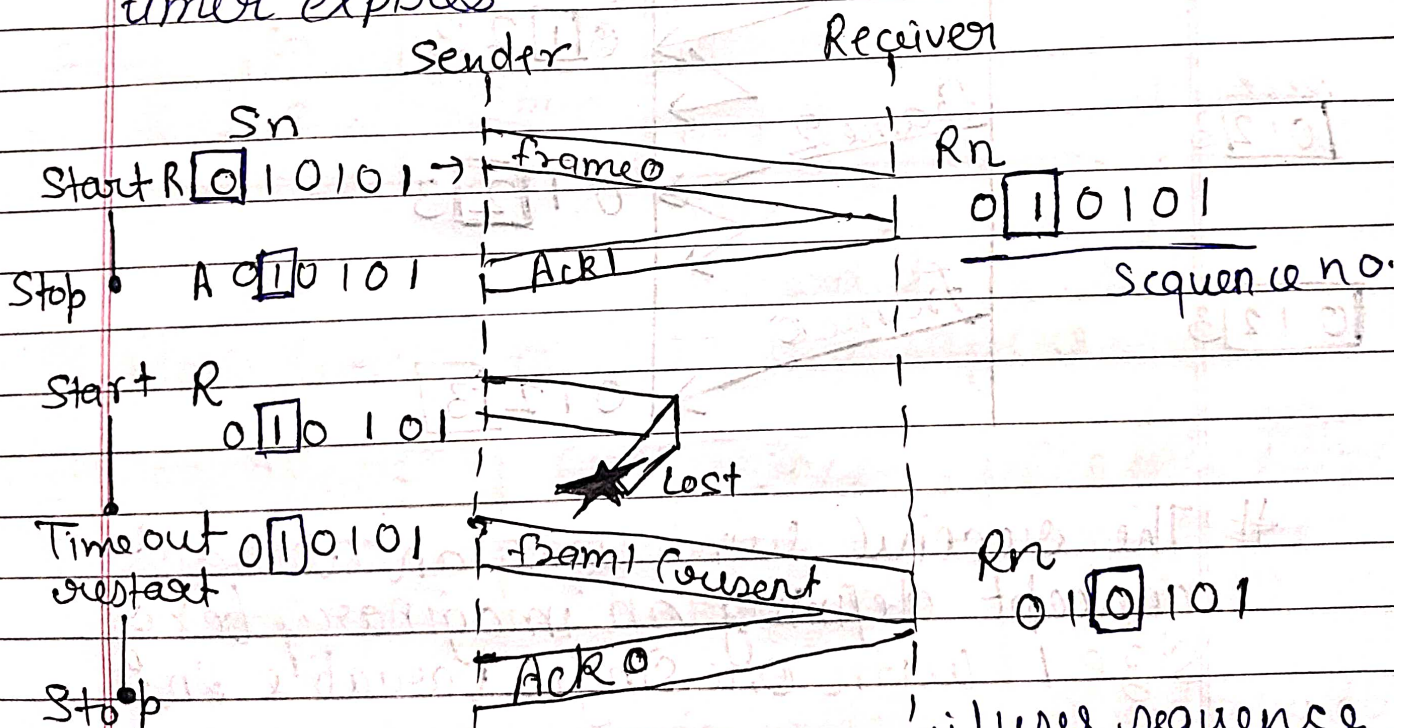 timer expires
Sender Receiver
Sn
Start R 0 1 0 1 0 1 → frame 0 Rn
0 1 0 1 0 1
Stop A 0 1 0 1 0 1 Ack 1 Sequence no.
Start R
0 1 0 1 0 1
Lost
Time out 0 1 0 1 0 1 fram 1 (resent Rn
restart 0 1 0 1 0 1
Ack 0
Stop
sequence